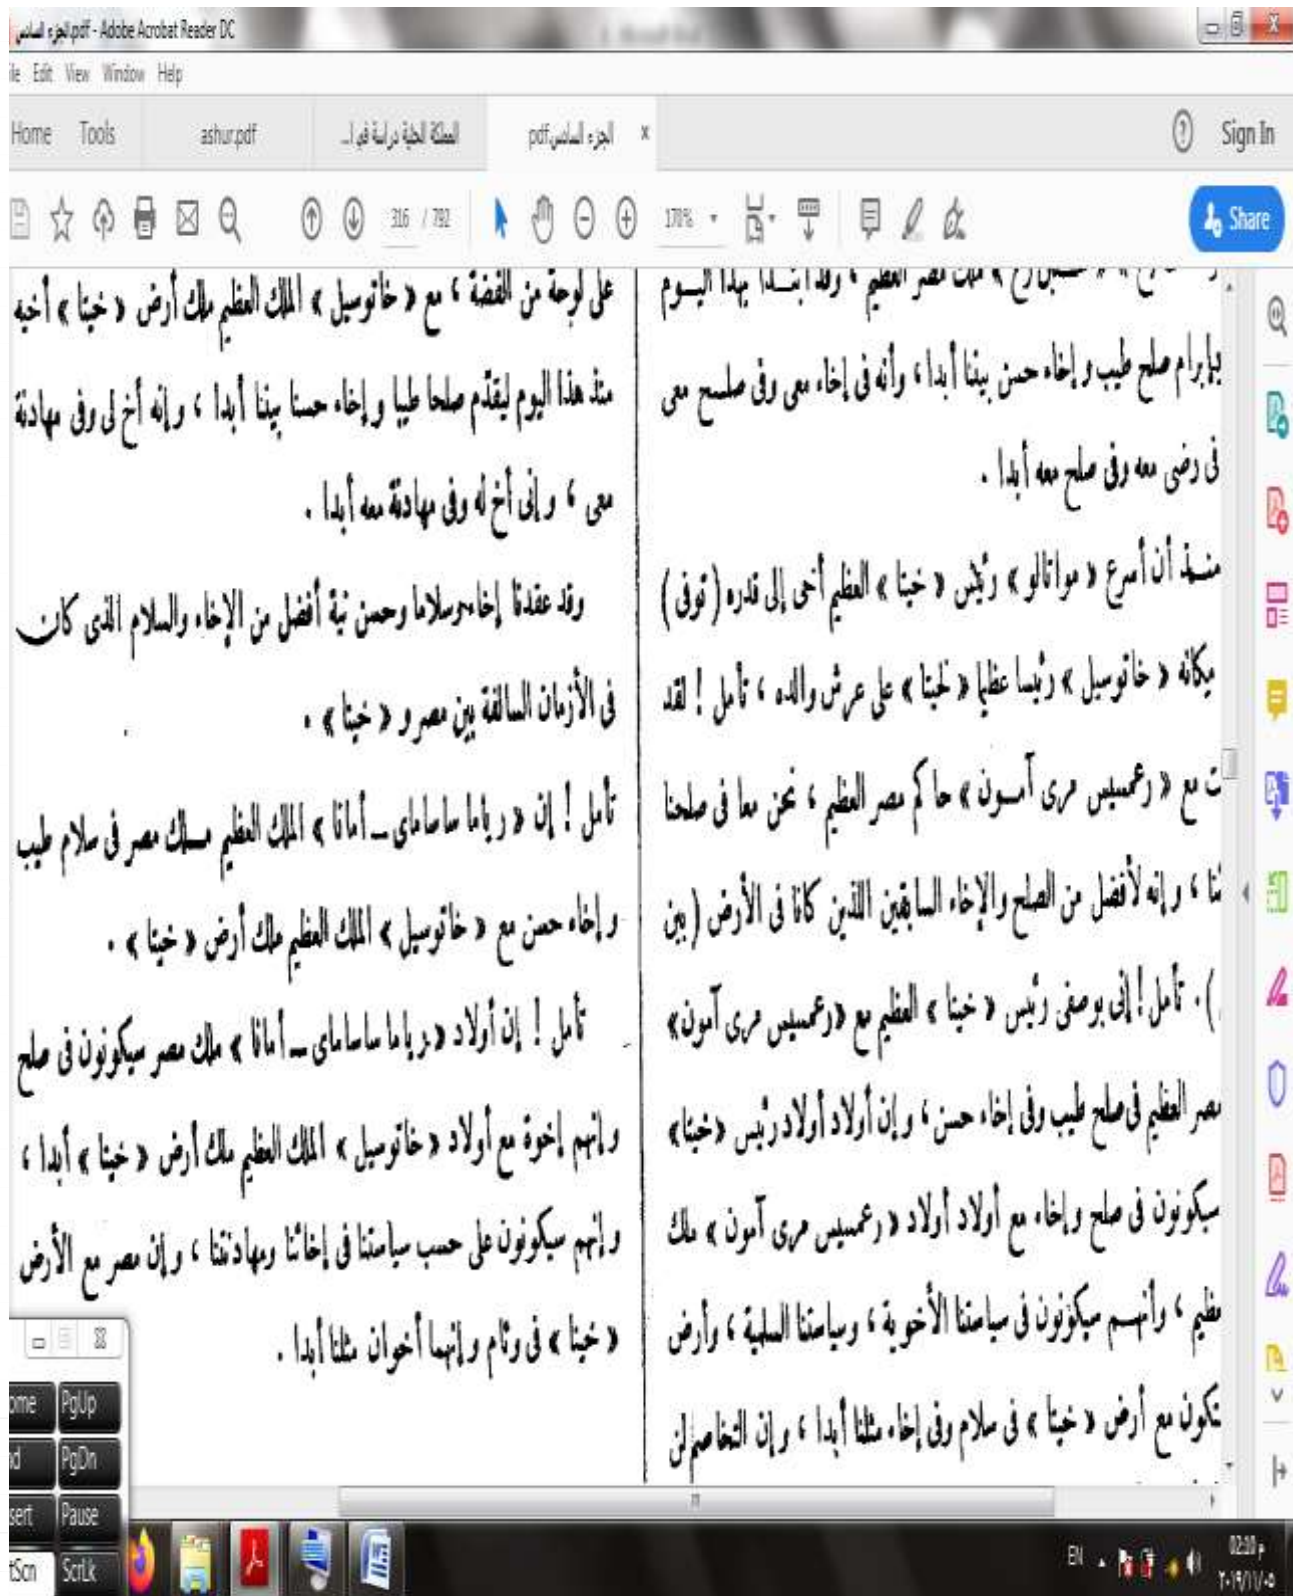 الجزء السادس.pdf - Adobe Acrobat Reader DC
ile Edit View Window Help
Home Tools ashur.pdf المملكة الحثية دراسة في ا... الجزء السادس.pdf x Sign In
316 / 792 170% Share
ملك مصر العظيم ، وقد ابتــدا بهذا اليــوم
بإبرام صلح طيب و إخاء حسن بيننا أبدا ، وأنه فى إخاء معى وفى صلــح معى
فى رضى معه وفى صلح معه أبدا .
منــذ أن أسرع « مواتالو » رئيس « خيتا » العظيم أخى إلى قدره ( توفى )
مكانه « خاتوسيل » رئيسا عظيما « لخيتا » على عرش والده ، تأمل ! لقد
ت مع « رعمسيس مرى آمــون » حاكم مصر العظيم ، نحن معا فى صلحنا
ئنا ، و إنه لأفضل من الصلح والإخاء السابقين اللذين كانا فى الأرض ( بين
) . تأمل ! إنى بوصفى رئيس « خيتا » العظيم مع « رعمسيس مرى آمون »
مصر العظيم فى صلح طيب وفى إخاء حسن ، و إن أولاد أولاد رئيس « خيتا »
سيكونون فى صلح و إخاء مع أولاد أولاد « رعمسيس مرى آمون » ملك
عظيم ، وأنهــم سيكونون فى سياستنا الأخوية ، وسياستنا السلمية ، وأرض
تكون مع أرض « خيتا » فى سلام وفى إخاء مثلنا أبدا ، و إن التخاصم لن
على لوحة من الفضة ، مع « خاتوسيل » الملك العظيم ملك أرض « خيتا » أخيه
منذ هذا اليوم ليقدّم صلحا طيبا و إخاء حسنا بيننا أبدا ، و إنه أخ لى وفى مهادنة
معى ، و إنى أخ له وفى مهادنة معه أبدا .
وقد عقدنا إخاء وسلاما وحسن نية أفضل من الإخاء والسلام الذى كان
فى الأزمان السالفة بين مصر و « خيتا » .
تأمل ! إن « رياما ساساماى ــ أمانا » الملك العظيم مــلك مصر فى سلام طيب
و إخاء حسن مع « خاتوسيل » الملك العظيم ملك أرض « خيتا » .
تأمل ! إن أولاد « رياما ساساماى ــ أمانا » ملك مصر سيكونون فى صلح
و إنهم إخوة مع أولاد « خاتوسيل » الملك العظيم ملك أرض « خيتا » أبدا ،
و إنهم سيكونون على حسب سياستنا فى إخائنا ومهادنتنا ، و إن مصر مع الأرض
« خيتا » فى وئام و إنهما أخوان مثلنا أبدا .
ome PgUp
d PgDn
sert Pause
tScn ScrLk
EN
02:10 م
٢٠١٩/١١/٠٥